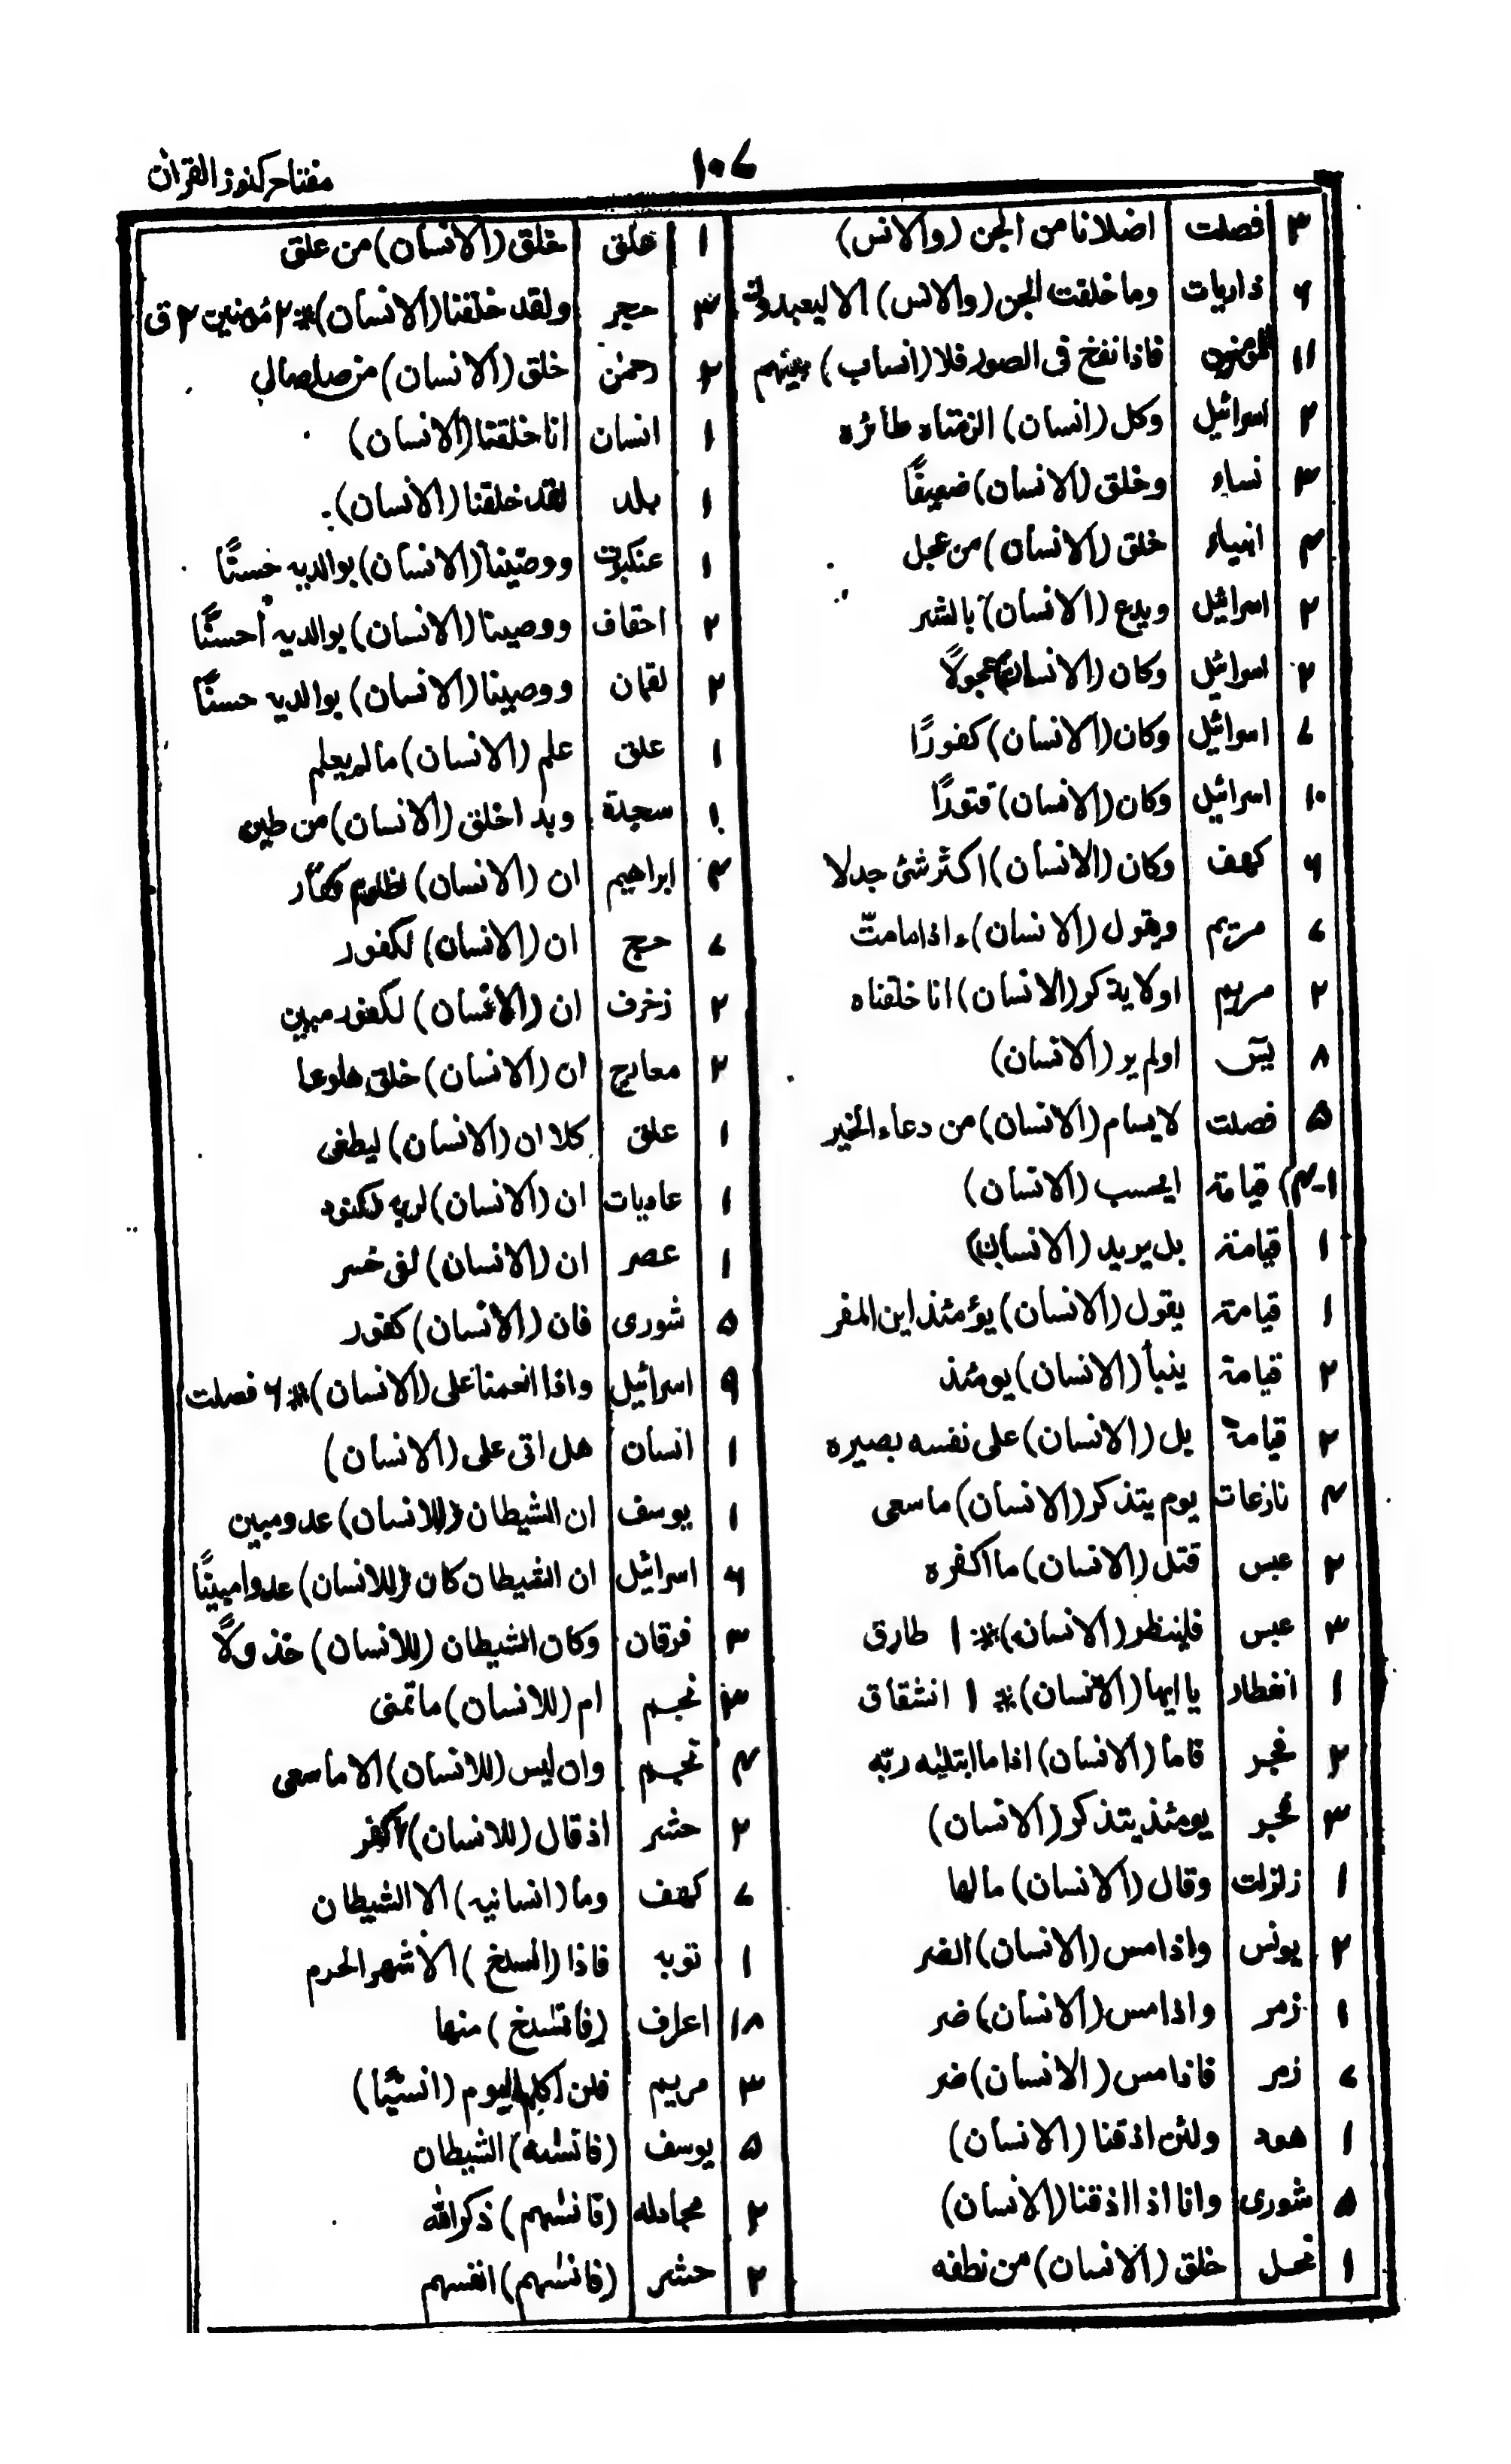 ۱۰۷
مفتاح کنوز القرآن
۳ فصلت اضلانا من الجن (والانس)
۶ ذاریات وما خلقت الجن (والانس) الا لیعبدون
۱۱ المؤمنون فاذا نفخ فی الصور فلا (انساب) بینهم
۲ اسرائیل وکل (انسان) الزمناه طائره
۳ نساء وخلق (الانسان) ضعیفًا
۳ انبیاء خلق (الانسان) من عجل
۲ اسرائیل ویدع (الانسان) بالشر
۲ اسرائیل وکان (الانسان) عجولًا
۷ اسرائیل وکان (الانسان) کفورًا
۱۰ اسرائیل وکان (الانسان) قتورًا
۶ کهف وکان (الانسان) اکثر شئ جدلا
۷ مریم ویقول (الانسان) ء اذا مامتّ
۲ مریم اولا یذکر (الانسان) انا خلقناه
۸ یٰسٓ اولم یر (الانسان)
۵ فصلت لا یسام (الانسان) من دعاء الخیر
۱-۴) قیامة ایحسب (الانسان)
۱ قیامة بل یرید (الانسان)
۱ قیامة یقول (الانسان) یؤمئذ این المفر
۲ قیامة ینبأ (الانسان) یومئذ
۲ قیامة بل (الانسان) علی نفسه بصیره
۴ نازعات یوم یتذکر (الانسان) ما سعی
۲ عبس قتل (الانسان) ما اکفره
۳ عبس فلینظر (الانسان) * ۱ طارق
۱ انفطار یا ایها (الانسان) * ۱ انشقاق
۲ فجر فاما (الانسان) اذا ما ابتلیٰه ربّه
۳ فجر یومئذ یتذکر (الانسان)
۱ زلزلت وقال (الانسان) مالها
۲ یونس واذا مس (الانسان) الضر
۱ زمر واذا مس (الانسان) ضر
۷ زمر فاذا مس (الانسان) ضر
۱ هود ولئن اذقنا (الانسان)
۵ شوری وانا اذا اذقنا (الانسان)
۱ نحل خلق (الانسان) من نطفه
۱ علق خلق (الانسان) من علق
۳ حجر ولقد خلقنا (الانسان) * ۲ مؤمنین ۲ ق
۲ رحمٰن خلق (الانسان) من صلصال
۱ انسان انا خلقنا (الانسان)
۱ بلد لقد خلقنا (الانسان)
۱ عنکبوت ووصّینا (الانسان) بوالدیه حسنًا
۲ احقاف ووصینا (الانسان) بوالدیه احسنًا
۲ لقمان ووصینا (الانسان) بوالدیه حسنًا
۱ علق علم (الانسان) ما لم یعلم
۱ سجدة وبدا خلق (الانسان) من طین
۴ ابراهیم ان (الانسان) لظلوم کفار
۷ حج ان (الانسان) لکفور
۲ زخرف ان (الانسان) لکفور مبین
۲ معارج ان (الانسان) خلق هلوعا
۱ علق کلا ان (الانسان) لیطغی
۱ عادیات ان (الانسان) لربه لکنود
۱ عصر ان (الانسان) لفی خسر
۵ شوری فان (الانسان) کفور
۹ اسرائیل واذا انعمنا علی (الانسان) * ۶ فصلت
۱ انسان هل اتی علی (الانسان)
۱ یوسف ان الشیطان (للانسان) عدو مبین
۶ اسرائیل ان الشیطان کان (للانسان) عدوا مبینًا
۳ فرقان وکان الشیطان (للانسان) خذولًا
۳ نجم ام (للانسان) ما تمنی
۴ نجم وان لیس (للانسان) الا ما سعی
۲ حشر اذ قال (للانسان) اکفر
۷ کهف وما (انسانیه) الا الشیطان
۱ توبه فاذا (انسلخ) الاشهر الحرم
۱۸ اعراف (فانسلخ) منها
۳ مریم فلن اکلم الیوم (انسیًا)
۵ یوسف (فانسٰه) الشیطان
۲ مجادله (فانسٰهم) ذکر الله
۲ حشر (فانسٰهم) انفسهم